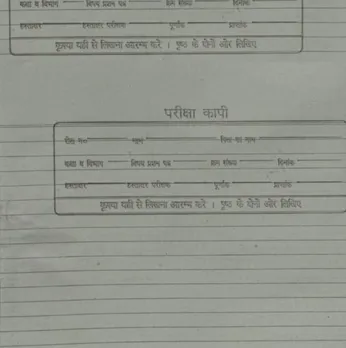 कक्षा व विभाग विषय प्रश्न पत्र क्रम संख्या दिनांक
हस्ताक्षर हस्ताक्षर परीक्षक पूर्णांक प्राप्तांक
कृपया यहाँ से लिखना आरम्भ करें । पृष्ठ के दोनों ओर लिखिए
परीक्षा कापी
नाम पिता का नाम
कक्षा व विभाग विषय प्रश्न पत्र क्रम संख्या दिनांक
हस्ताक्षर हस्ताक्षर परीक्षक पूर्णांक प्राप्तांक
कृपया यहाँ से लिखना आरम्भ करें । पृष्ठ के दोनों ओर लिखिए